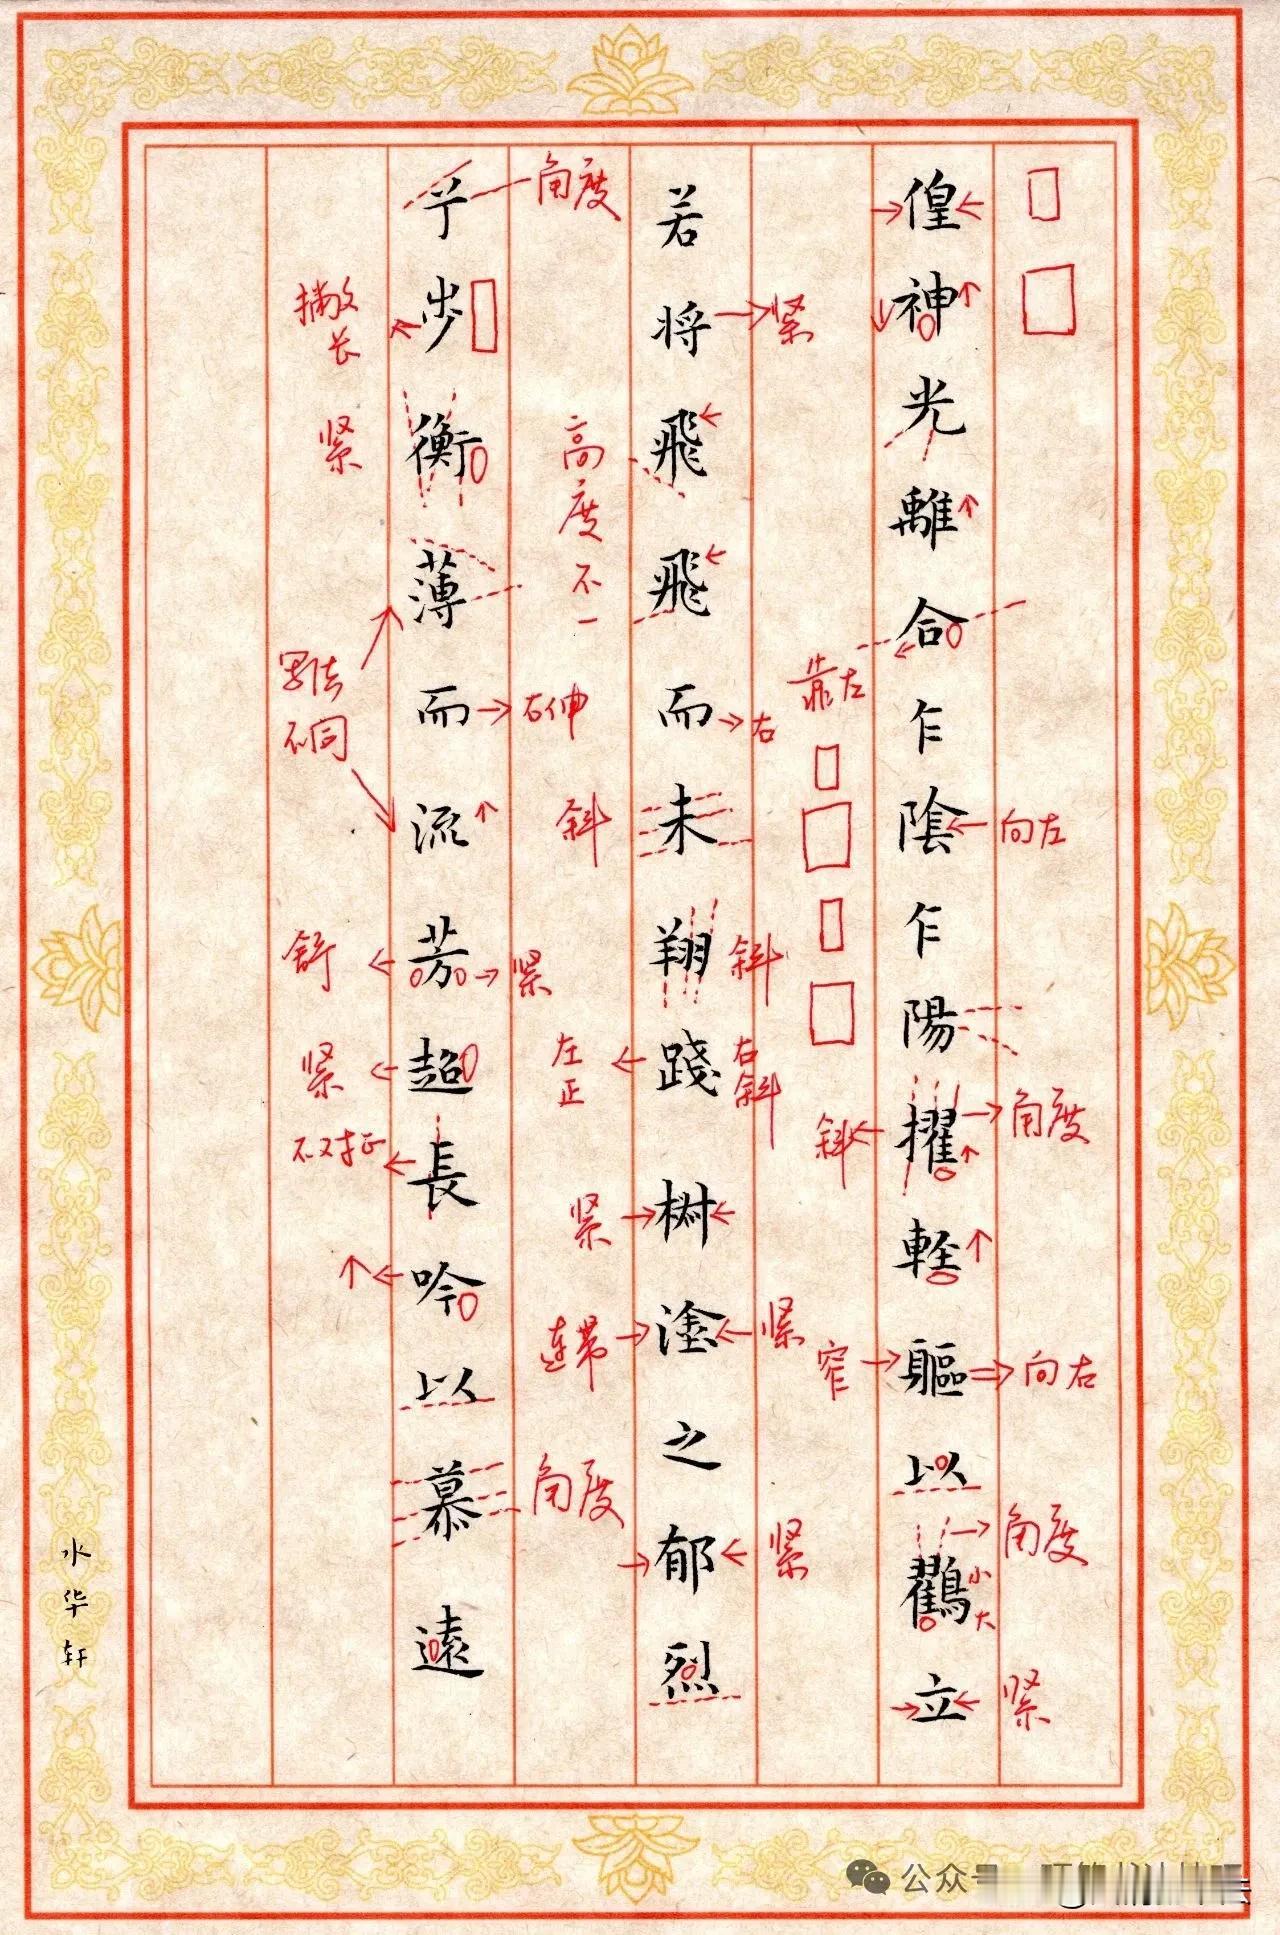 向左
角度
向右
角度
紧
偟神光離合乍陰乍陽擢輕軀以鶴立
小大
紧
右
靠左
斜
右斜
斜
紧
窄
紧
若将飛飛而未翔踐椒塗之郁烈
角度
高度不一
右伸
斜
紧
左正
紧
连带
角度
兮步衡薄而流芳超長吟以慕遠
撇长
紧
写法不同
舒
紧
不对正
水华轩
公众号